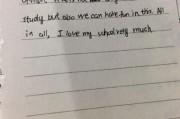 study but also we can have fun in this. All
in all, I love my school very much